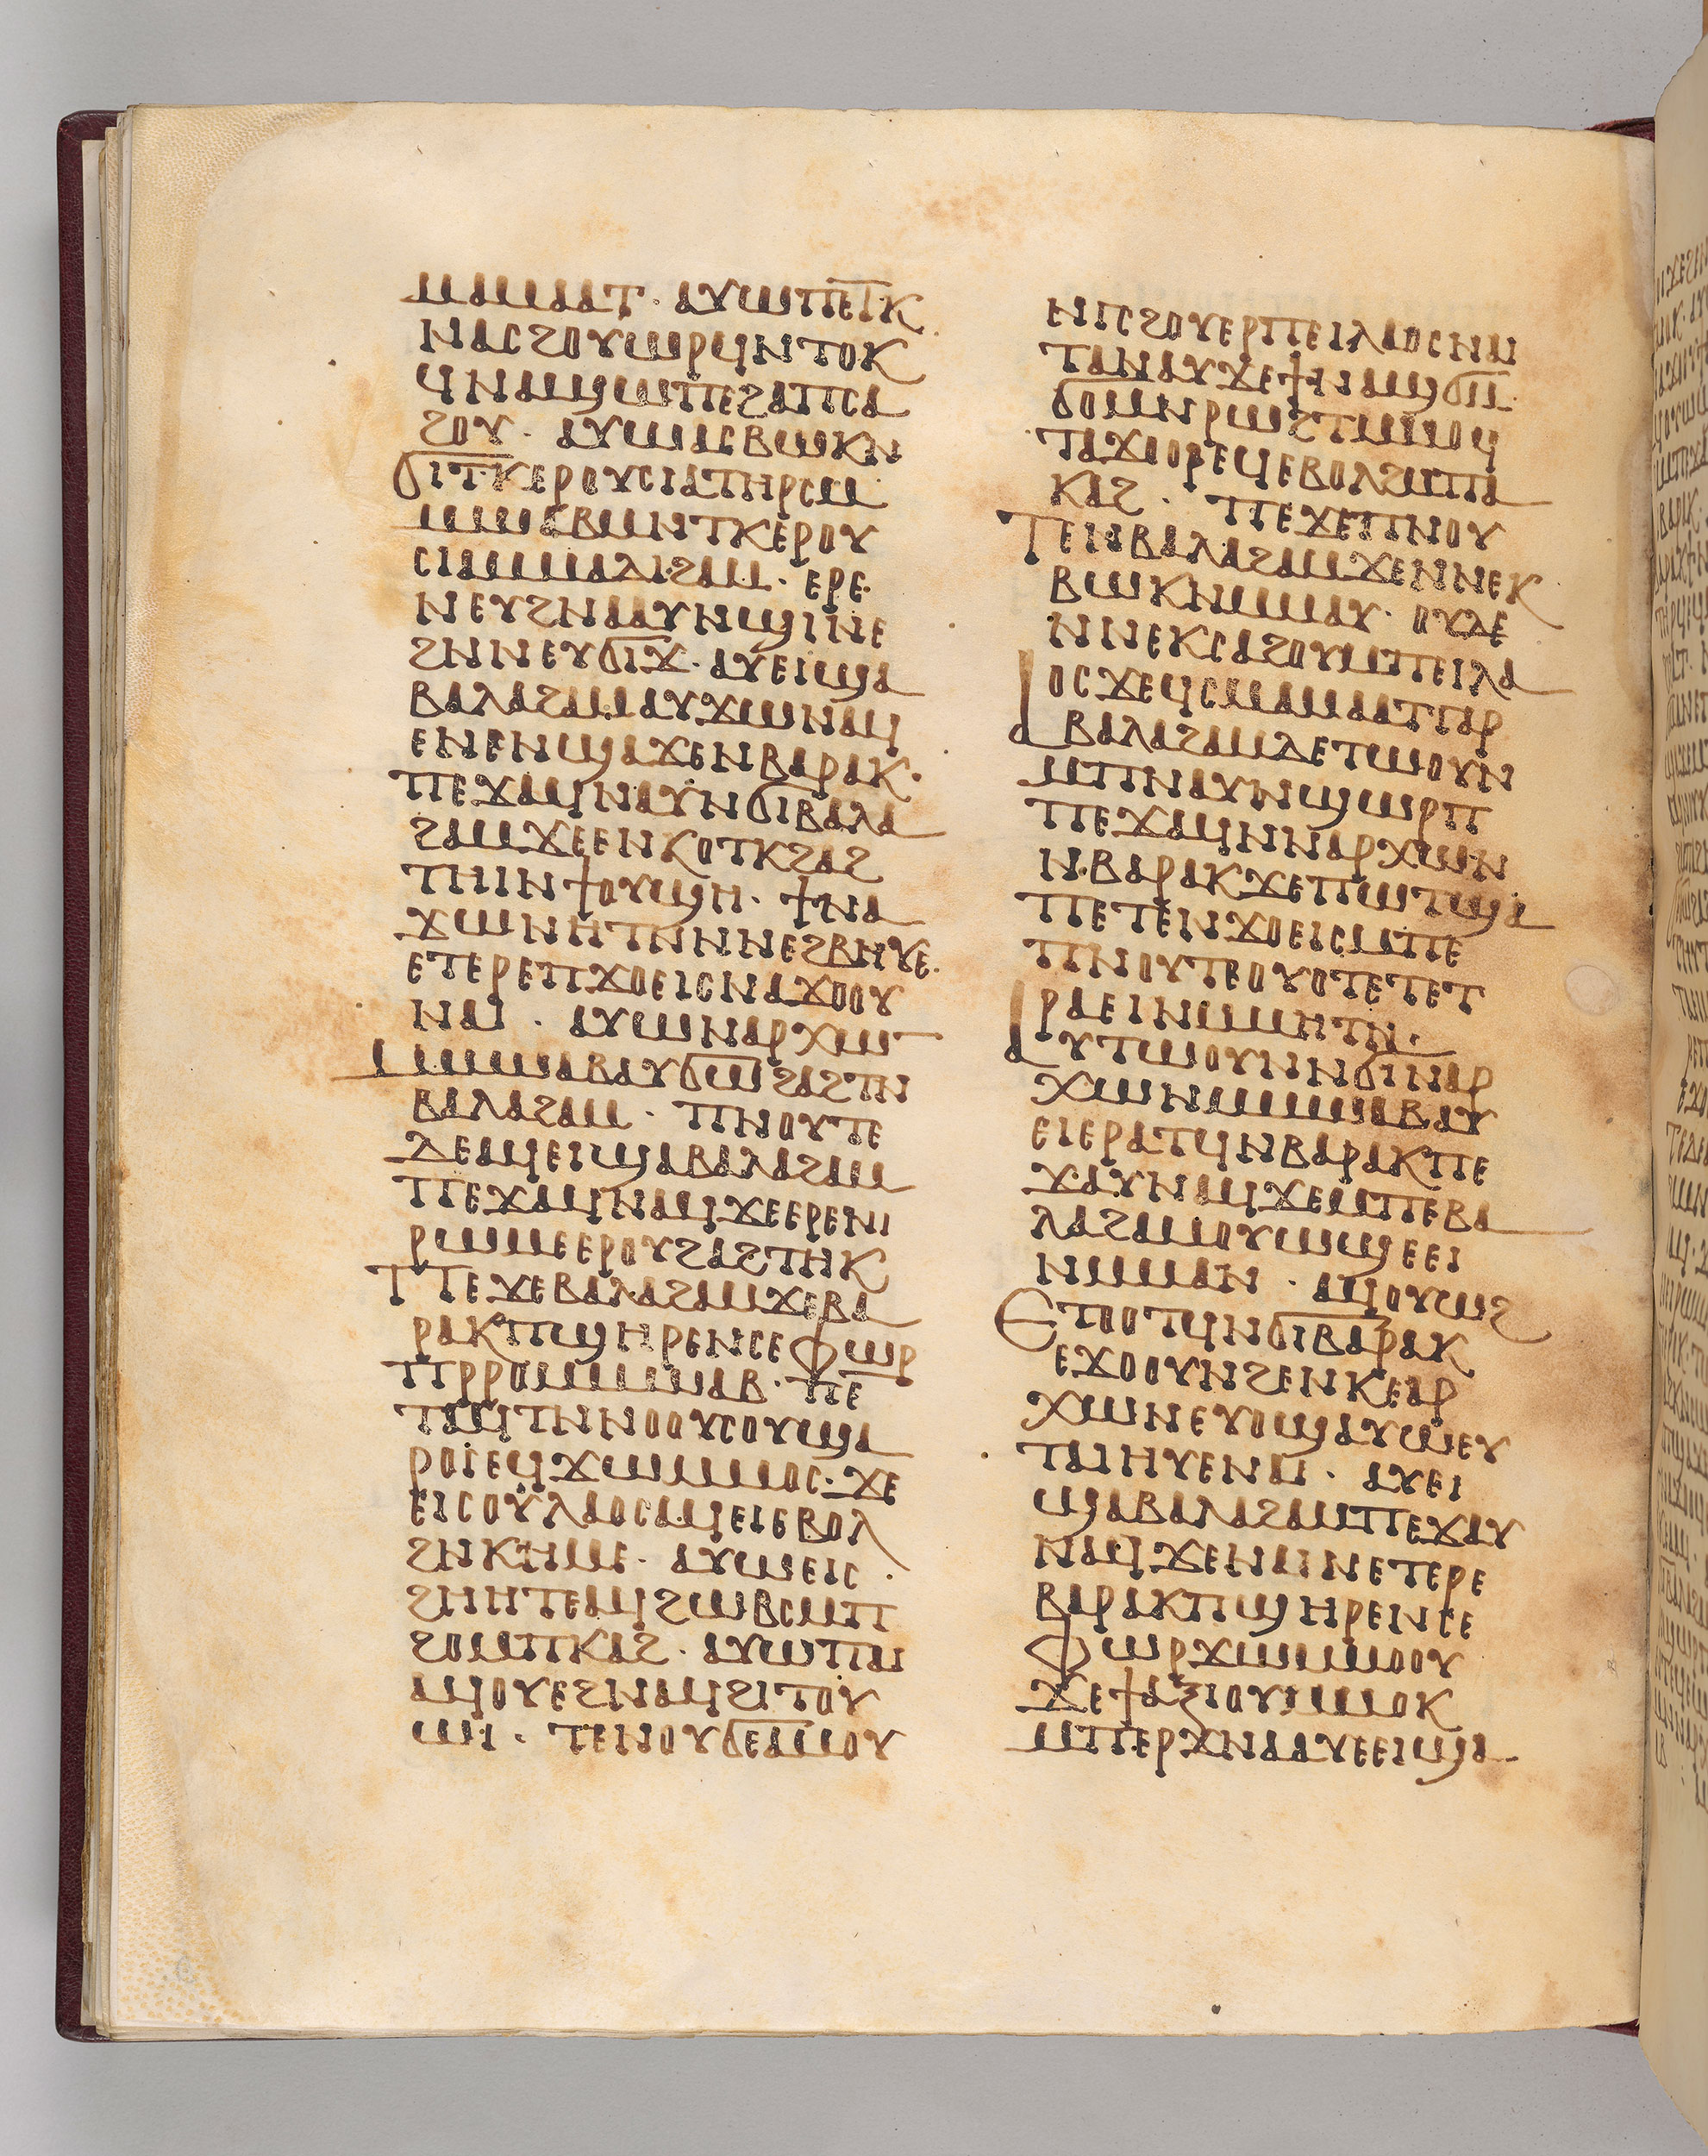 ⲙⲁⲙⲁⲁⲧ· ⲁⲩⲱⲡⲉⲧⲕ
ⲛⲁⲥϩⲟⲩⲱⲣϥⲛⲧⲟⲕ
ϥⲛⲁϣⲱⲡⲉϩⲁⲡⲥⲁ
ϩⲟⲩ· ⲁⲩⲱⲁⲥⲃⲱⲕⲛ
ϭⲓⲧⲕⲉⲣⲟⲩⲥⲓⲁⲧⲏⲣⲥⲙ
ⲙⲱⲁⲃⲙⲛⲧⲕⲉⲣⲟⲩ
ⲥⲓⲁⲙⲙⲁⲇⲓϩⲁⲙ· ⲉⲣⲉ
ⲛⲉⲩϩⲛⲁⲁⲩⲛϣⲓⲛⲉ
ϩⲛⲛⲉⲩϭⲓϫ· ⲁⲩⲉⲓϣⲁ
ⲃⲁⲗⲁϩⲁⲙⲁⲩϫⲱⲛⲁϥ
ⲉⲛⲉⲛϣⲁϫⲉⲛⲃⲁⲣⲁⲕ·
ⲡⲉϫⲁϥⲛⲁⲩⲛϭⲓⲃⲁⲗⲁ
ϩⲁⲙϫⲉⲉⲛⲕⲟⲧⲕϩⲁϩ
ⲧⲏⲓⲛϯⲟⲩϣⲏ· ϯⲛⲁ
ϫⲱⲛⲏⲧⲛⲛⲛⲉϩⲃⲏⲩⲉ·
ⲉⲧⲉⲣⲉⲡϫⲟⲉⲓⲥⲛⲁϫⲟⲟⲩ
ⲛⲁⲓ· ⲁⲩⲱⲛⲁⲣⲭⲱⲛ
ⲙⲙⲱⲁⲃⲁⲩϭⲱϩⲁϩⲧⲛ
ⲃⲁⲗⲁϩⲁⲙ· ⲡⲛⲟⲩⲧⲉ
ⲇⲉⲁϥⲉⲓϣⲁⲃⲁⲗⲁϩⲁⲙ
ⲡⲉϫⲁϥⲛⲁϥϫⲉⲉⲣⲉⲛⲓ
ⲣⲱⲙⲉⲉⲣⲟⲩϩⲁϩⲧⲏⲕ
ⲡⲉϫⲉⲃⲁⲗⲁϩⲁⲙϫⲉⲃⲁ
ⲣⲁⲕⲡϣⲏⲣⲉⲛⲥⲉⲫⲱⲣ
ⲡⲣⲣⲟⲙⲙⲱⲁⲃ· ⲡⲉ
ⲧⲁϥⲧⲛⲛⲟⲟⲩⲥⲟⲩϣⲁ
ⲣⲟⲓⲉϥϫⲱⲙⲙⲟⲥ· ϫⲉ
ⲉⲓⲥⲟⲩⲗⲁⲟⲥⲁϥⲉⲓⲉⲃⲟⲗ
ϩⲛⲕⲏⲙⲉ· ⲁⲩⲱⲉⲓⲥ
ϩⲏⲏⲧⲉⲁϥϩⲱⲃⲥⲙⲡ
ϩⲟⲙⲡⲕⲁϩ· ⲁⲩⲱⲡⲁⲓ
ⲁϥⲟⲩⲉϩⲛⲁϥϩⲓⲧⲟⲩ
ⲱⲓ· ⲧⲉⲛⲟⲩϭⲉⲁⲙⲟⲩ
ⲛⲅⲥϩⲟⲩⲉⲣⲡⲉⲓⲗⲁⲟⲥⲛⲁⲓ
ⲧⲁⲛⲁⲩϫⲉϯⲛⲁϣϭⲙ
ϭⲟⲙⲛⲣⲱϩⲧⲙⲙⲟϥ
ⲧⲁϫⲟⲟⲣⲉϥⲉⲃⲟⲗϩⲙⲡ
ⲕⲁϩ· ⲡⲉϫⲉⲡⲛⲟⲩ
ⲧⲉⲛⲃⲁⲗⲁϩⲁⲙϫⲉⲛⲛⲉⲕ
ⲃⲱⲕⲛⲙⲙⲁⲩ· ⲟⲩⲇⲉ
ⲛⲛⲉⲕⲥⲁϩⲟⲩⲙⲡⲉⲓⲗⲁ
ⲟⲥϫⲉϥⲥⲙⲁⲙⲁⲁⲧⲅⲁⲣ
ⲁⲃⲁⲗⲁϩⲁⲙⲇⲉⲧⲱⲟⲩⲛ
ⲙⲡⲛⲁⲩⲛϣⲱⲣⲡ
ⲡⲉϫⲁϥⲛⲛⲁⲣⲭⲱⲛ
ⲛⲃⲁⲣⲁⲕϫⲉⲡⲱⲧϣⲁ
ⲡⲉⲧⲉⲛϫⲟⲉⲓⲥⲙⲡⲉ
ⲡⲛⲟⲩⲧⲉⲟⲩⲟⲧⲉⲧⲉⲧ
ⲣⲁⲉⲓⲛⲙⲙⲏⲧⲛ·
ⲁⲩⲧⲱⲟⲩⲛⲛϭⲓⲛⲁⲣ
ⲭⲱⲛⲙⲙⲱⲁⲃⲁⲩ
ⲉⲓⲉⲣⲁⲧϥⲛⲃⲁⲣⲁⲕⲡⲉ
ϫⲁⲩⲛⲁϥϫⲉⲙⲡⲉⲃⲁ
ⲗⲁϩⲁⲙⲟⲩⲱϣⲉⲉⲓ
ⲛⲙⲙⲁⲛ· ⲁϥⲟⲩⲱϩ
ⲉⲧⲟⲟⲧϥⲛϭⲓⲃⲁⲣⲁⲕ
ⲉϫⲟⲟⲩⲛϩⲉⲛⲕⲉⲁⲣ
ⲭⲱⲛⲉⲩⲟϣⲁⲩⲱⲉⲩ
ⲧⲁⲓⲏⲩⲉⲛⲁⲓ· ⲁⲩⲉⲓ
ϣⲁⲃⲁⲗⲁϩⲁⲙⲡⲉϫⲁⲩ
ⲛⲁϥϫⲉⲛⲁⲓⲛⲉⲧⲉⲣⲉ
ⲃⲁⲣⲁⲕⲡϣⲏⲣⲉⲛⲥⲉ
ⲫⲱⲣϫⲱⲙⲙⲟⲟⲩ
ϫⲉϯⲁⲝⲓⲟⲩⲙⲙⲟⲕ
ⲙⲡⲉⲣϫⲛⲁⲁⲩⲉⲉⲓϣⲁ